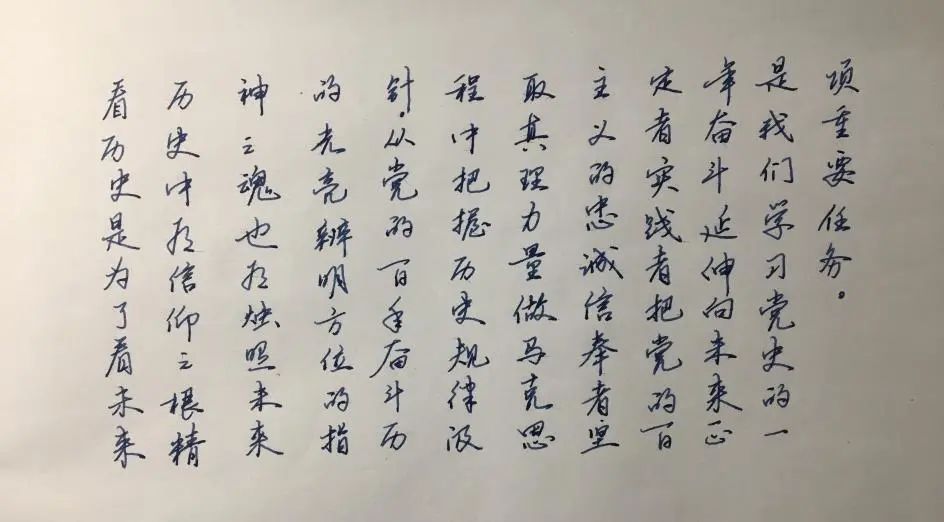 看历史是为了看未来
历史中有信仰之根精
神之魂也有烛照未来
的光亮辨明方位的指
针。从党的百年奋斗历
程中把握历史规律汲
取真理力量做马克思
主义的忠诚信奉者坚
定者实践者把党的百
年奋斗延伸向未来正
是我们学习党史的一
项重要任务。